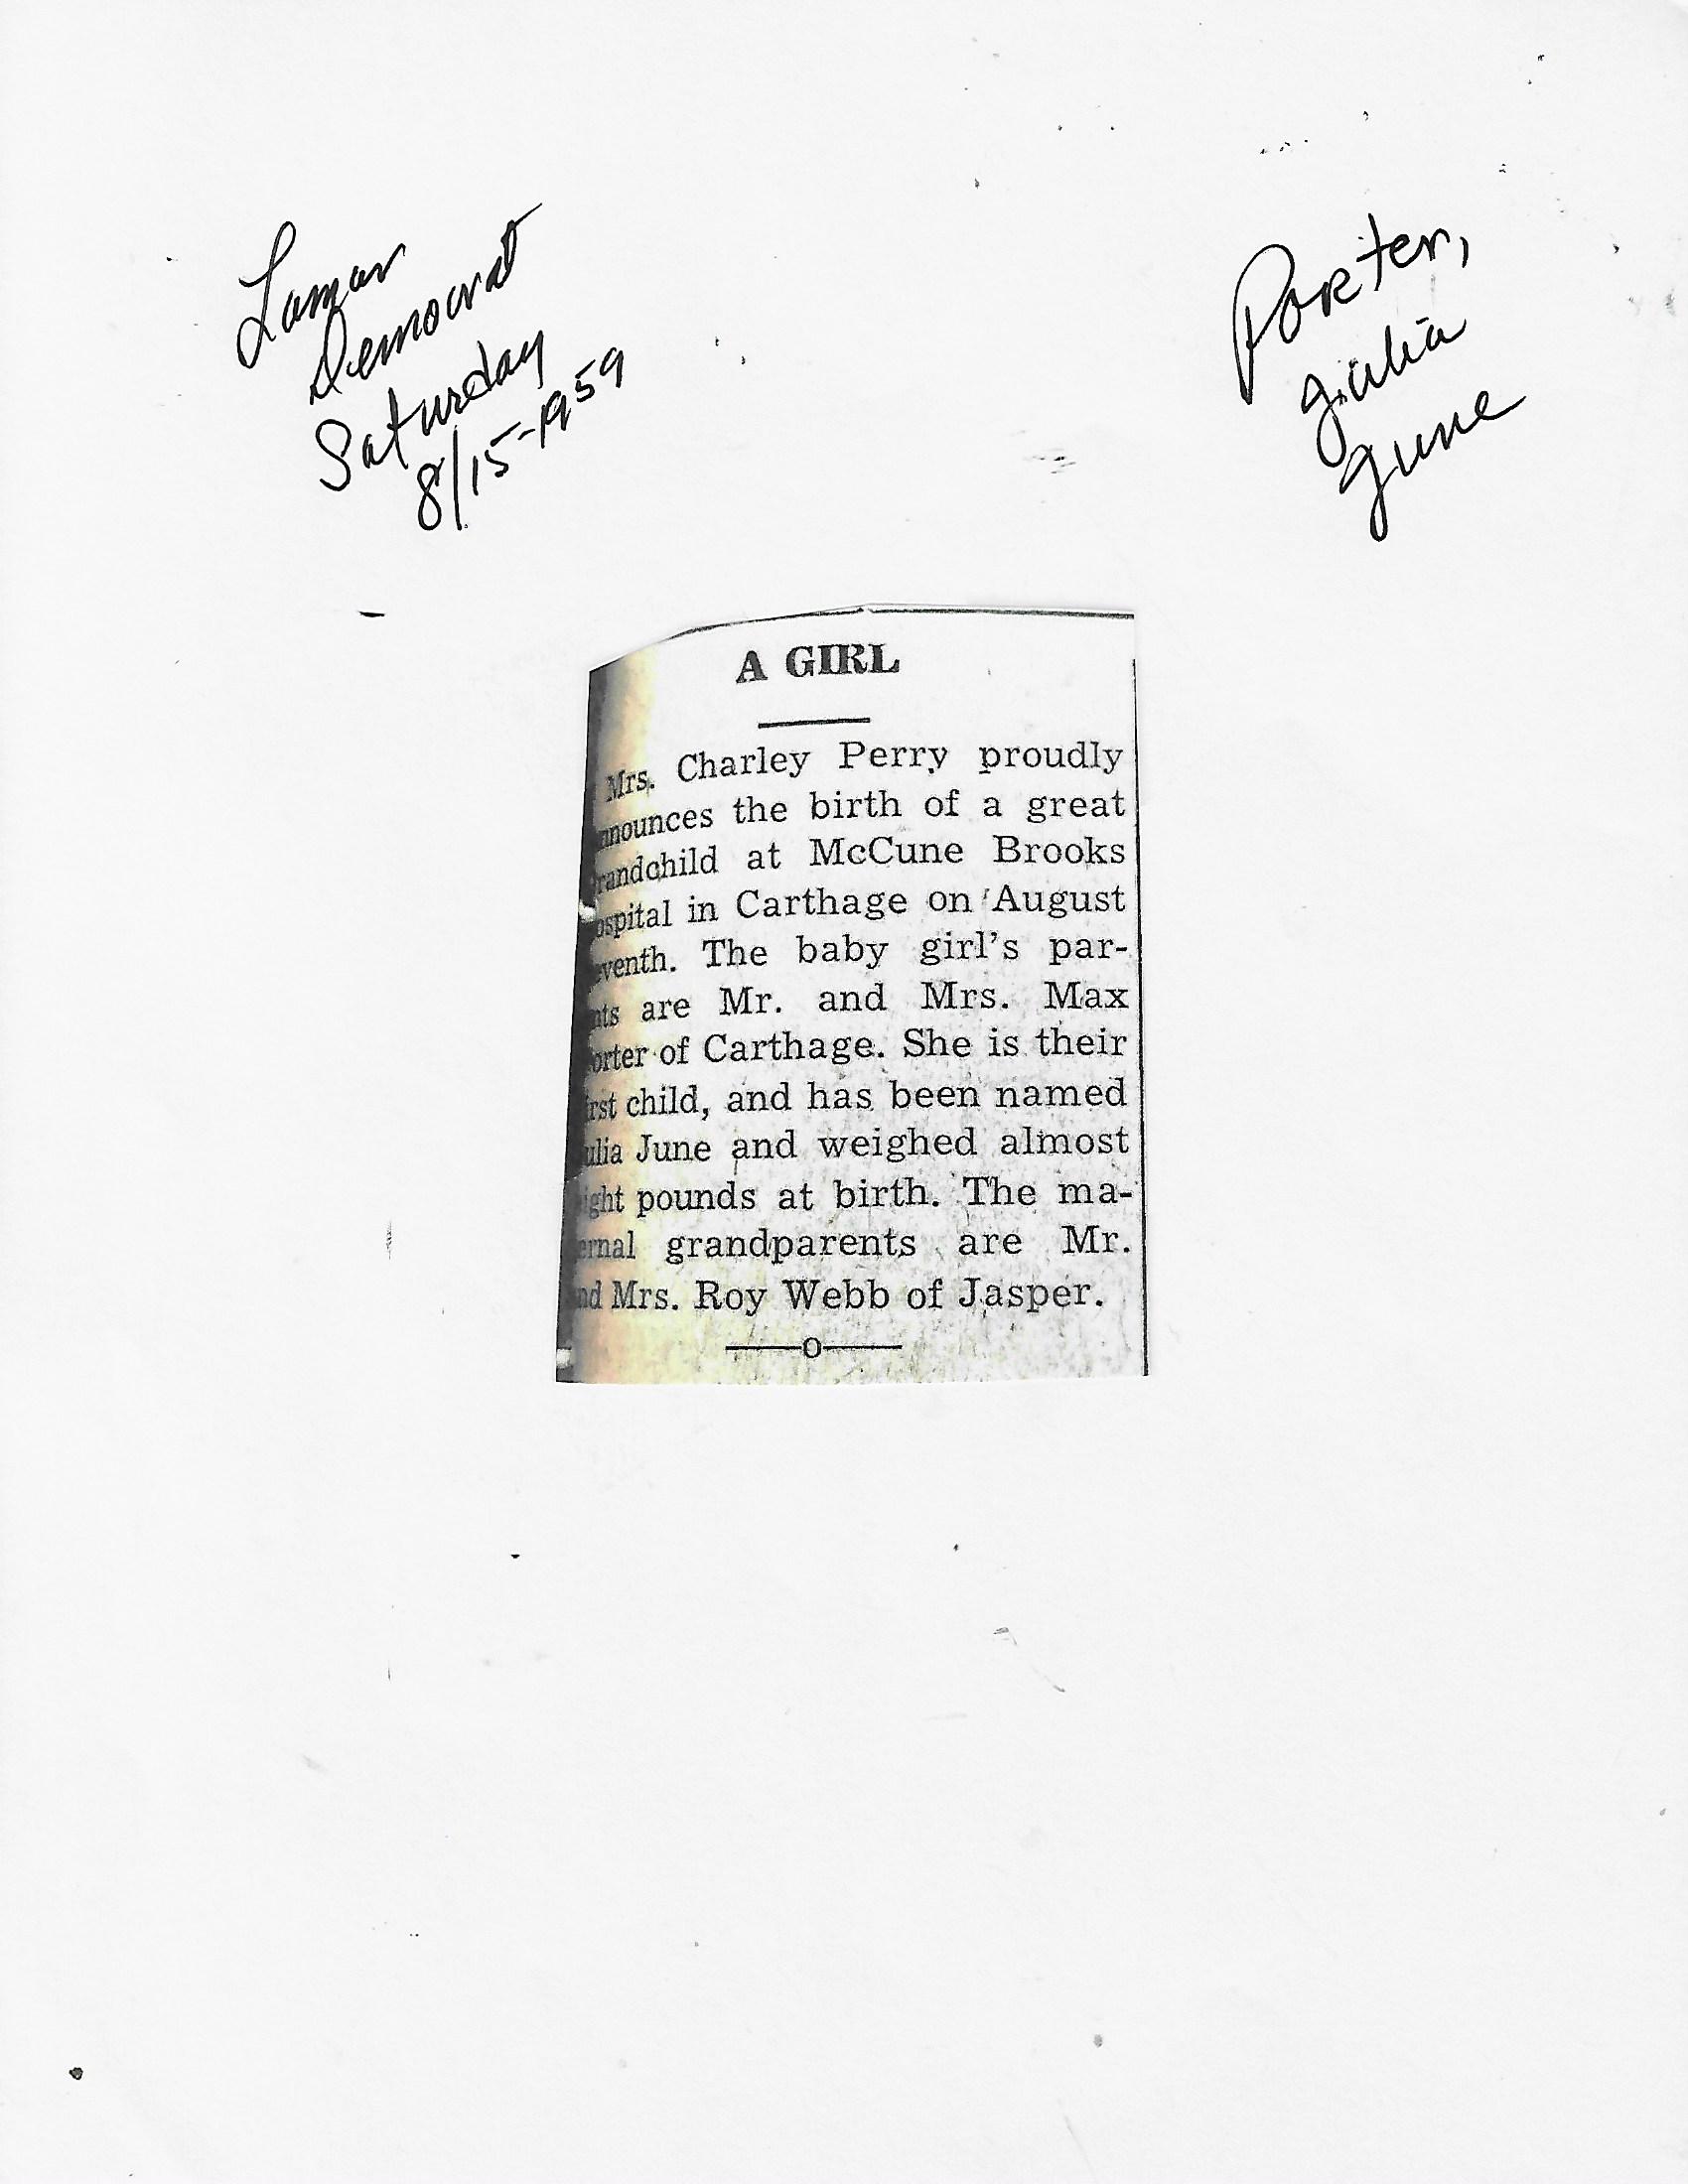 Lamar
Democrat
Saturday
8/15-1959
Porter,
Julia
June
A GIRL
Mrs. Charley Perry proudly
nnounces the birth of a great
randchild at McCune Brooks
ospital in Carthage on August
eventh. The baby girl's par-
nts are Mr. and Mrs. Max
orter of Carthage. She is their
irst child, and has been named
ulia June and weighed almost
ight pounds at birth. The ma-
ernal grandparents are Mr.
nd Mrs. Roy Webb of Jasper.
——o——